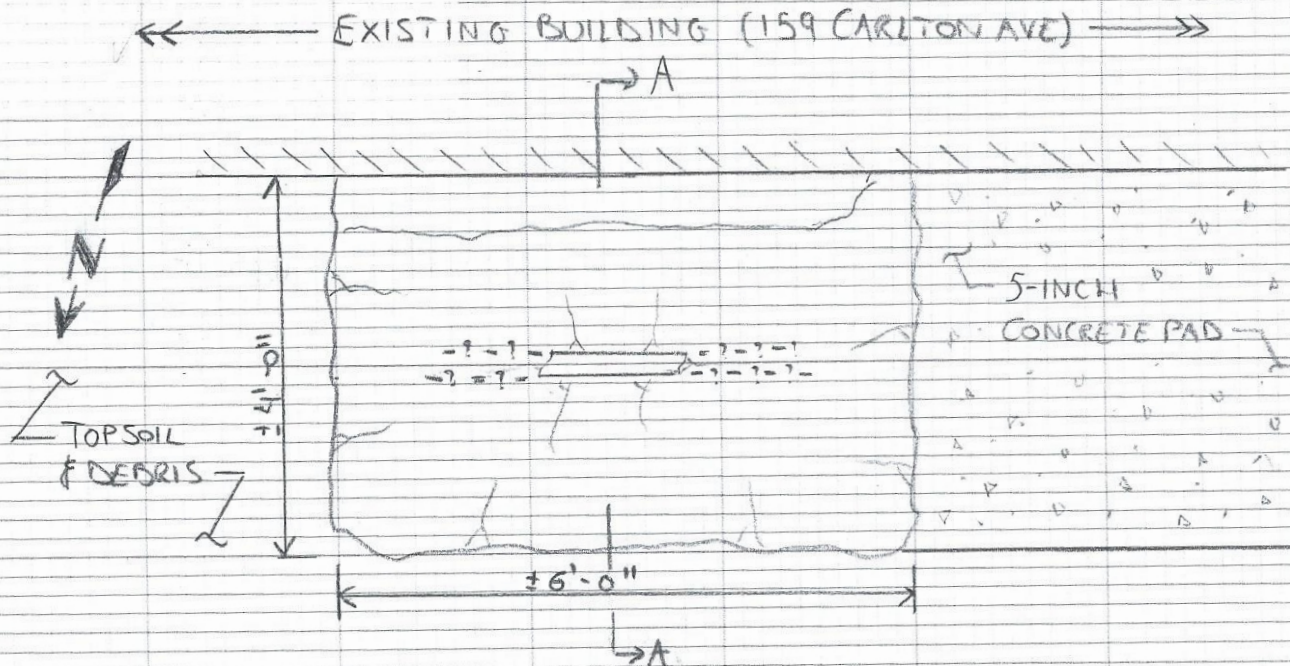 EXISTING BUILDING (159 CARLTON AVE)
A
N
5-INCH
CONCRETE PAD
-?-?-
-?-?-?
-?=?-
-?-?-?-
±4'-0"
TOPSOIL
& DEBRIS
±6'-0"
A